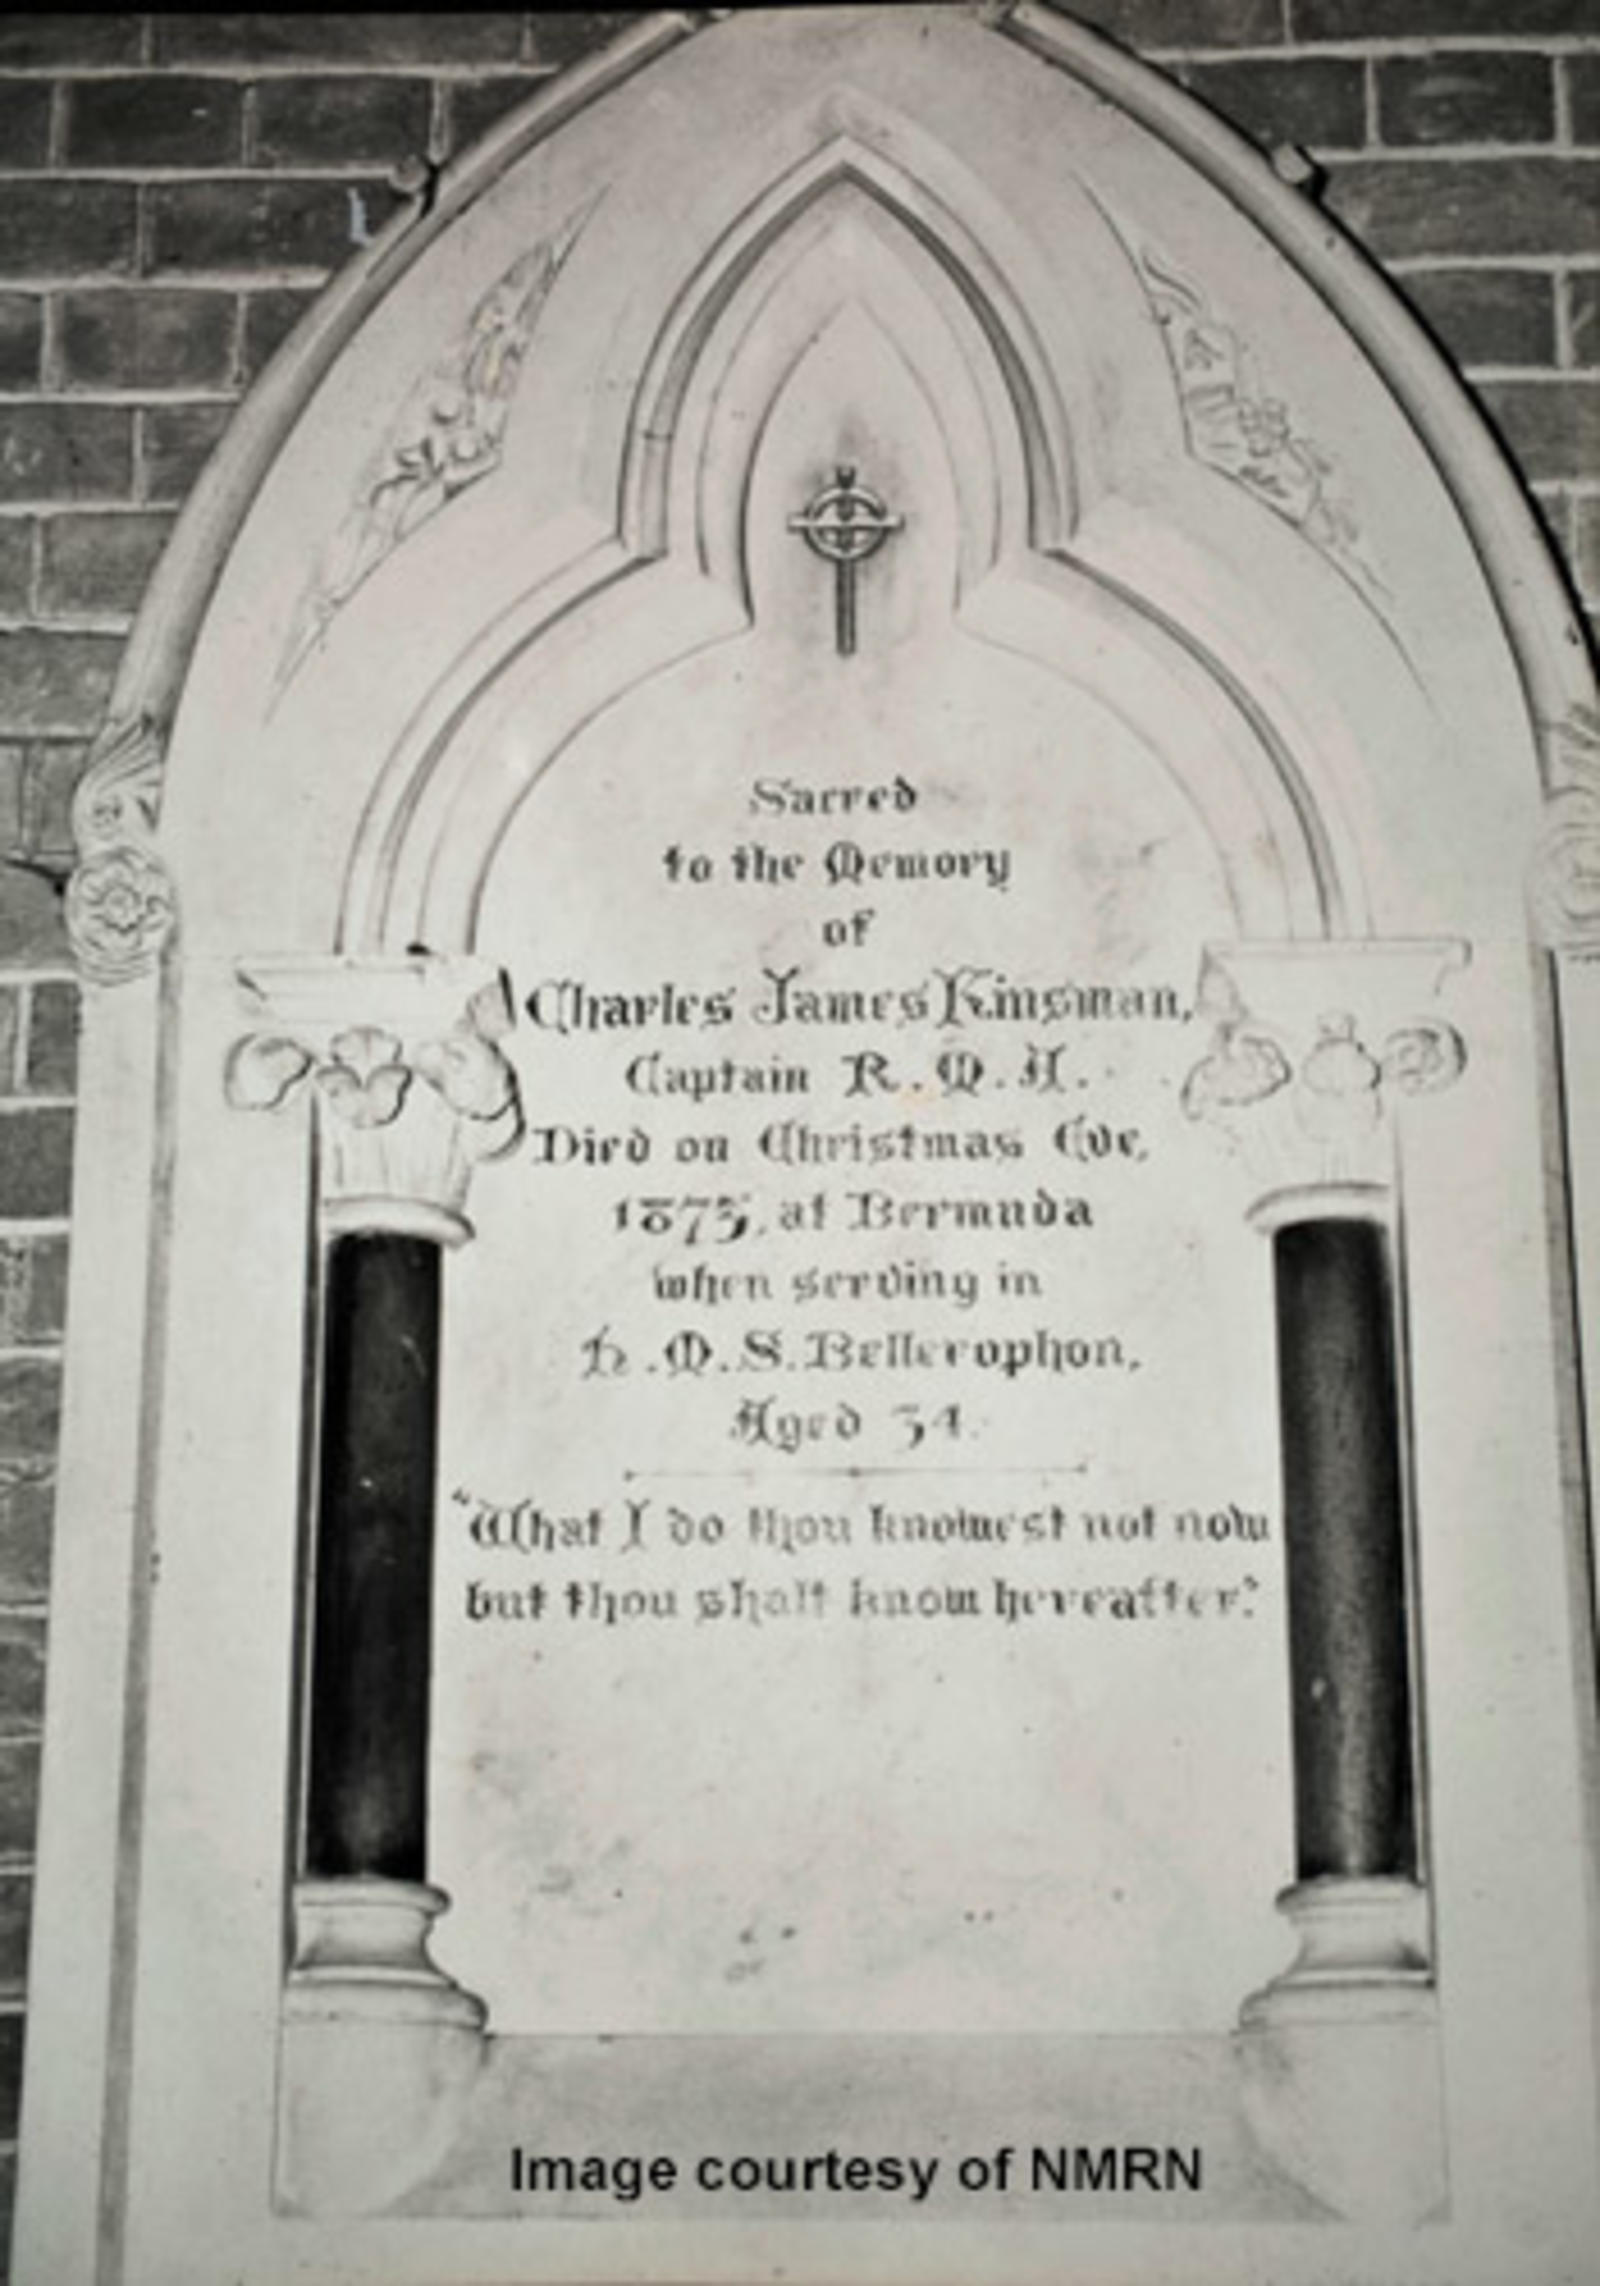 Sacred
to the Memory
of
Charles James Kinsman,
Captain R.M.A.
Died on Christmas Eve,
1875, at Bermuda
when serving in
H.M.S. Bellerophon,
Aged 34.
"What I do thou knowest not now
but thou shalt know hereafter."
Image courtesy of NMRN